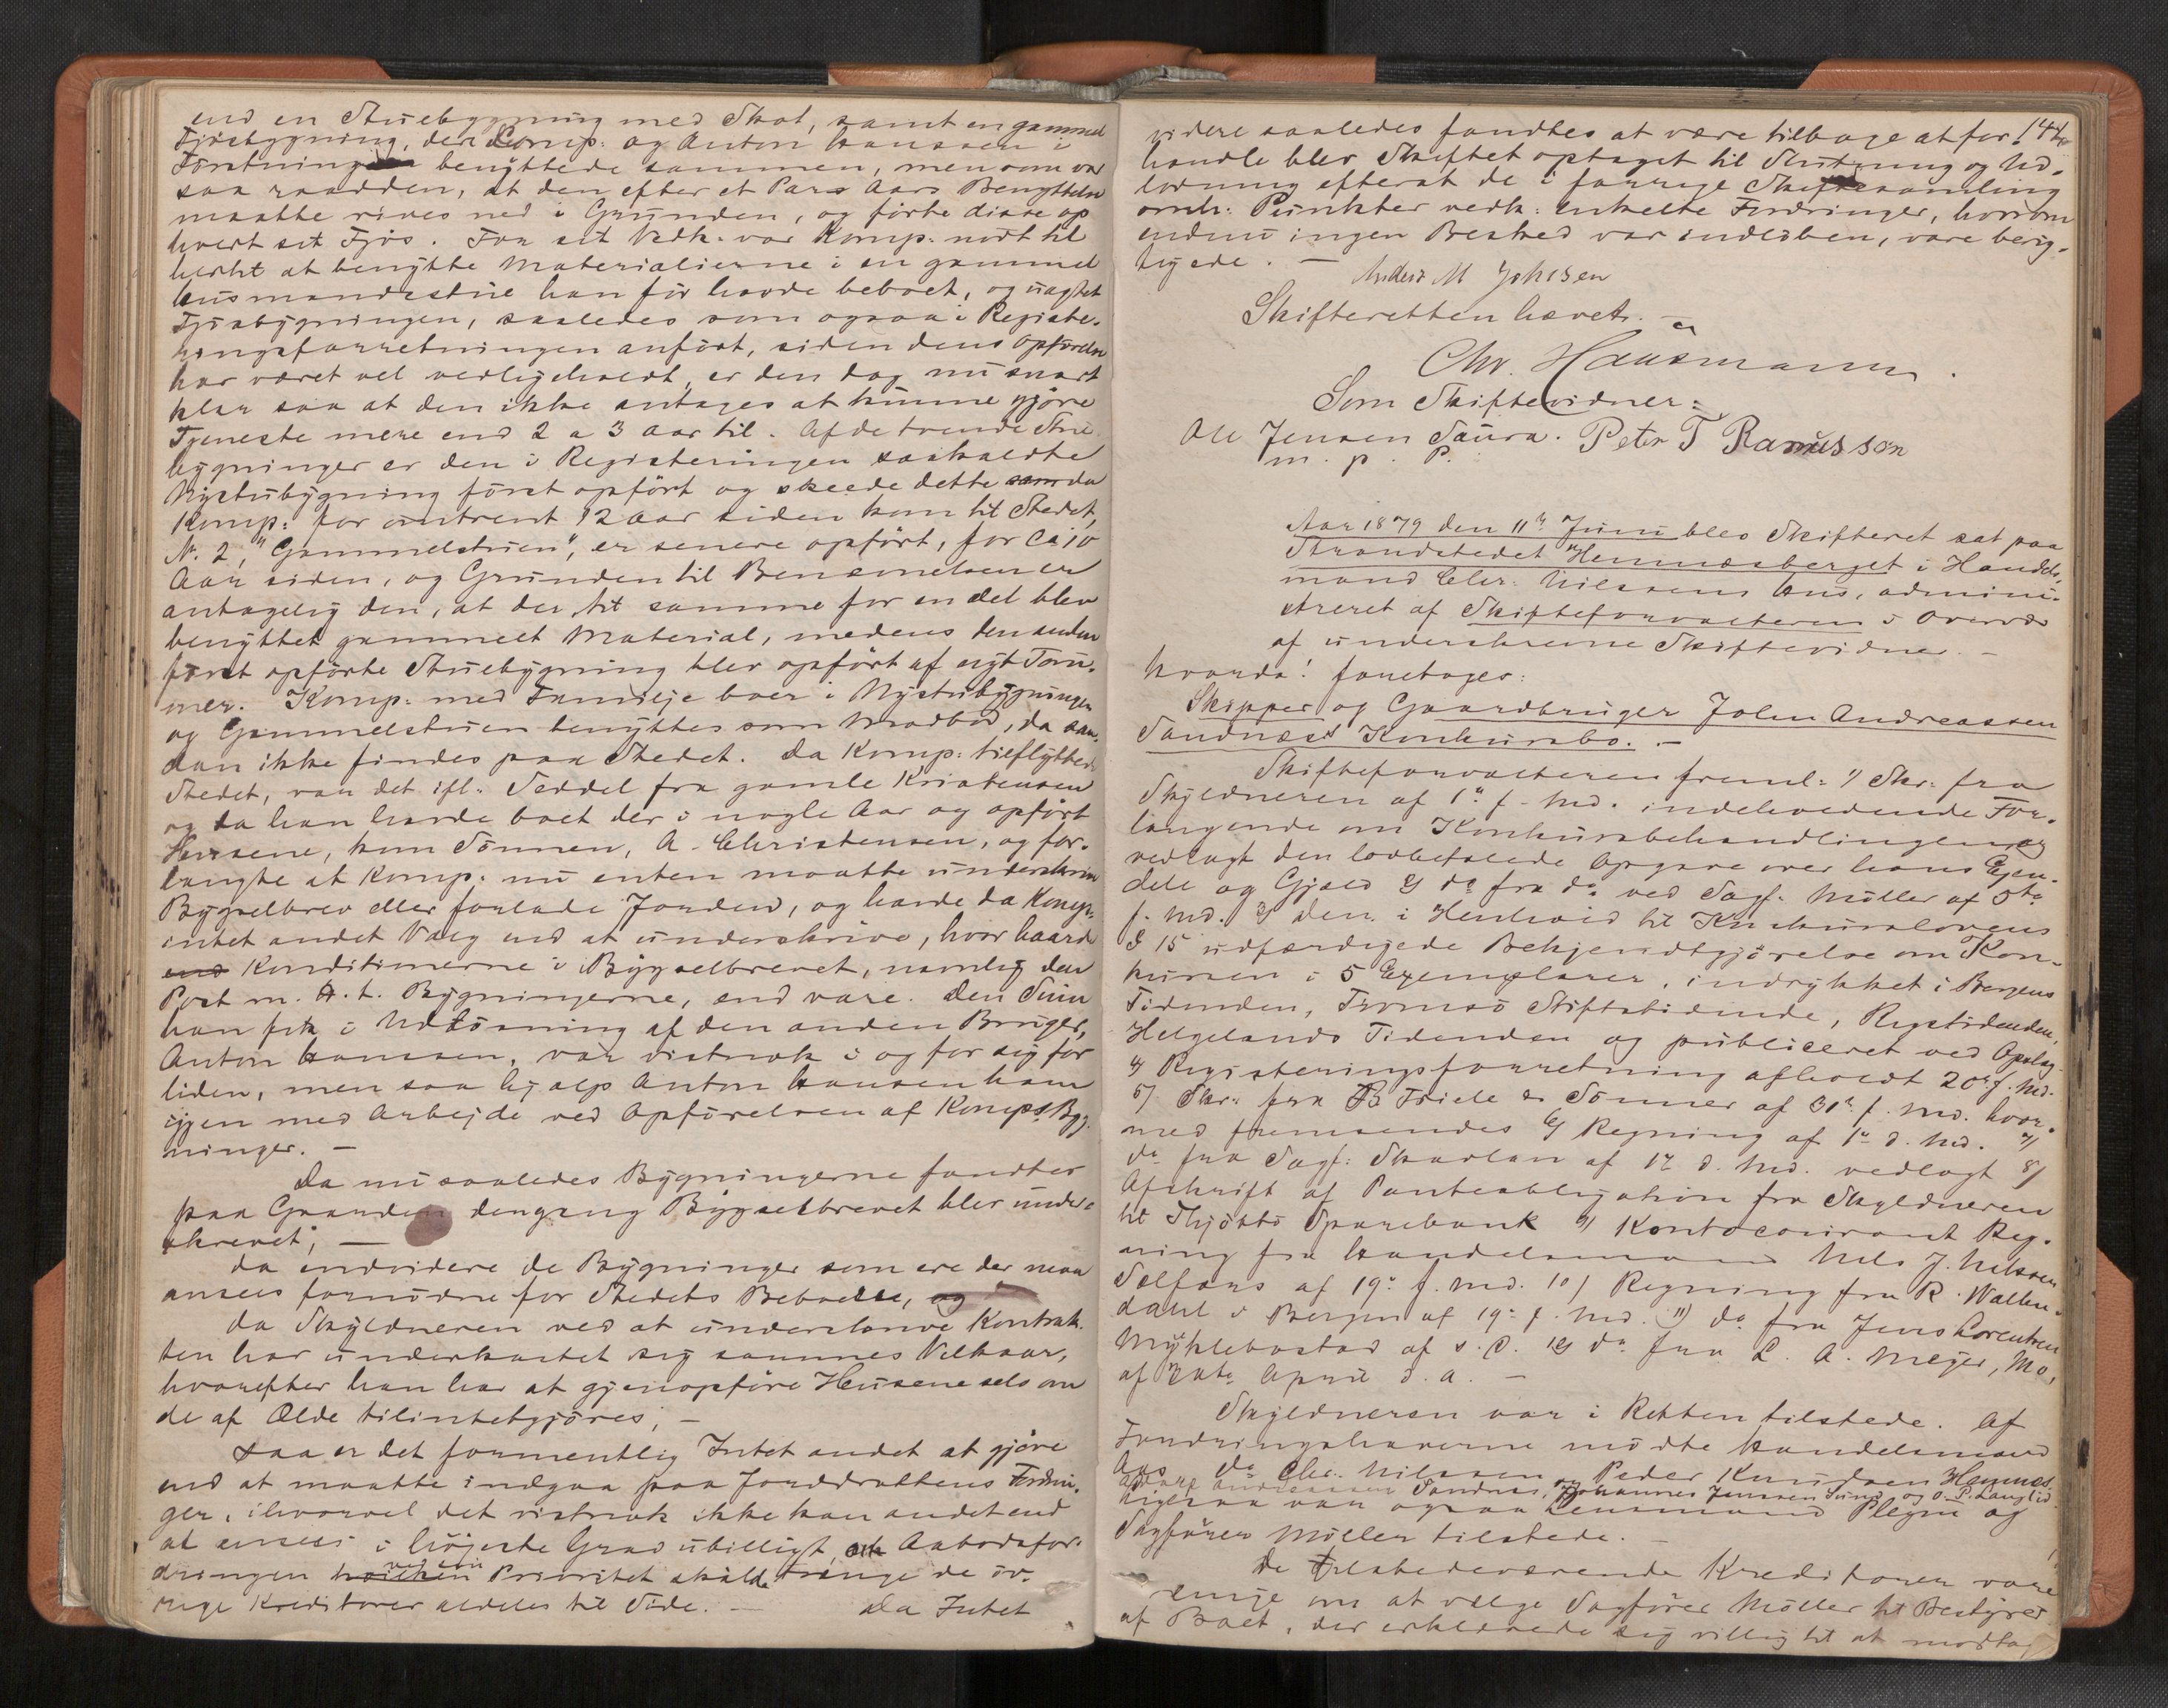 end en Stuebygning med Skot, samt en gammel
Fjøsbygning, den Comp: og Anton Hanssen i
Førstningen benyttede sammen, men som var
saa raadden, at den efter et Pars Aars Benyttelse
maatte rives ned i Grunden, og førte disse op
hvert sit Fjøs. For sit Vedk. var Komp: nødt til
hertil at benytte Materialierne i en gammel
Husmandsstue han før havde beboet, og uagtet
Fjøsbygningen, saaledes som ogsaa i Registe-
ringsforretningen anført, siden dens Opførelse
har været vel vedligeholdt, er den dog nu snart
klar saa at den ikke antages at kunne gjøre
Tjeneste mere end 2 a 3 Aar til. Af de tvende Stue
bygninger er den i Registeringen saakaldte
Nystubygning først opført og skeede dette da
Komp: for omtrent 12 Aar siden kom til Stedet,
No. 2, "Gammelstuen", er senere opført, for Ca 10
Aar siden, og Grunden til Benævnelsen er
antagelig den, at der til samme for en del blev
benyttet gammelt Material, medens den anden
først opførte Stuebygning blev opført af nyt Tøm-
mer. Komp: med Familje boer i Nystubygningen
og Gammelstuen benyttes som Madbod, da saa-
dan ikke findes paa Stedet. Da Komp: tilflyttede
Stedet, var det ifl. Seddel fra gamle Kristensen
og da han havde boet der i nogle Aar og opført
Husene, kom Sønnen, A. Christensen, og for-
langte at Komp: nu enten maatte underskrive
Bygselbrev eller forlade Jorden, og havde da Komp:
intet andet Valg end at underskrive, hvor haarde
end Konditionerne i Bygselbrevet, navnlig den
Post m. H. t. Bygningerne, end vare. Den Sum
han fik i Udløsning af den anden Bruger,
Anton Hanssen, var vistnok i og for sig for
liden, men saa hjalp Anton Hansen ham
igjen med Arbejde ved Opførelsen af Komps Byg-
ninger. —
Da nu saaledes Bygningerne fandtes
paa Gaarden dengang Bygselbrevet blev under-
skrevet; —
da endvidere de Bygninger som ere der maa
ansees fornødne for Stedets Beboelse, og
da Skyldneren ved at underskrive Kontrak-
ten har underkastet sig sammes Vilkaar,
hvorefter han har at gjenopføre Husene selv om
de af Ælde tilintetgjøres, —
saa er det formentlig Intet andet at gjøre
end at maatte indgaa paa Jorddrottens Fordrin-
ger, ihvorvel det vistnok ikke kan andet end
at ansees i høieste Grad ubilligt, at Aabodsfor-
dringen ved sin Prioritet skulde trænge de øv-
rige Kreditorer aldeles til Side. — Da Intet
videre saaledes fandtes at være tilbage at for- 144
handle blev Skiftet optaget til Slutning og Ud-
lodning efterat de i forrige Skiftesamling
omh: Punkter vedk: enkelte Fordringer, hvorom
endnu ingen Besked var indløben, vare berig-
tigede. —
Anders M Johsen
Skifteretten hævet. —
Chr. Hausmann.
Som Skiftevidner:
Ole Jensen Saura. Peter T Rasmussen
m. p. P.
Aar 1879 den 11te Juni blev Skifteret sat paa
Strandstedet Hemnæsberget i Handels-
mand Chr: Nilssens Hus, admini-
streret af Skifteforvalteren i Overvær
af underskrevne Skiftevidner. —
hvorda! foretoges:
Skipper og Gaardbruger John Andreassen
Sandnæs's Konkursbo. —
Skifteforvalteren freml: 1/ Skr: fra
Skyldneren af 1ste f. Md. indeholdende For-
langende om Konkursbehandlingen og
vedlagt den lovbefalede Opgave over hans Ejen-
dele og Gjæld 2/ do fra do ved Sagf. Møller af 5te
f. Md. 3/ den i Henhold til Konkurslovens
§ 15 udfærdigede Bekjendtgjørelse om Kon-
kursen i 5 Exemplarer, indrykket i Bergens
Tidenden, Tromsø Stiftstidende, Rigstidenden,
Helgelands Tidenden og publiceret ved Opslag
4/ Registeringsforretning afholdt 20de f. Md.
5/ Skr: fra B Friele & Sønner af 31te f. Md. hvor-
med fremsendes 6/ Regning af 1ste d. Md. 7/
do fra Sagf: Skarlan af 12 d. Md. vedlagt 8/
Afskrift af Panteobligation fra Skyldneren
til Thjøttø Sparebank 9/ Kontocourant Reg-
ning fra Handelsmand Nils J. Nilssen
Selfors af 19de f. Md. 10/ Regning fra R. Wallen-
dahl i Bergen af 19de f. Md. 11) do fra Jens Lorentsen
Myklebostad af s. D. 12/ do fra L. A. Meyer, Mo,
af April d. A. —
Skyldneren var i Retten tilstede. Af
Fordringshaverne mødte Handelsmand
do Chr. Nilssen og Peder Knudsen Hemnes
Andreassen Sandnes, Johannes Jenssen Sund og O. P. Langlid
ligesaa var ogsaa Lensmand Plegm og
Sagfører Møller tilstede. —
De tilstedeværende Kreditorer vare
enige om at vælge Sagfører Møller til Bestyrer
af Boet, der erklærede sig villig til at modtage